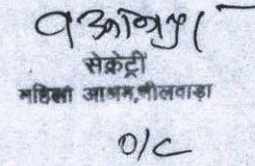 सेक्रेट्री
महिला आश्रम,भीलवाड़ा
O/C